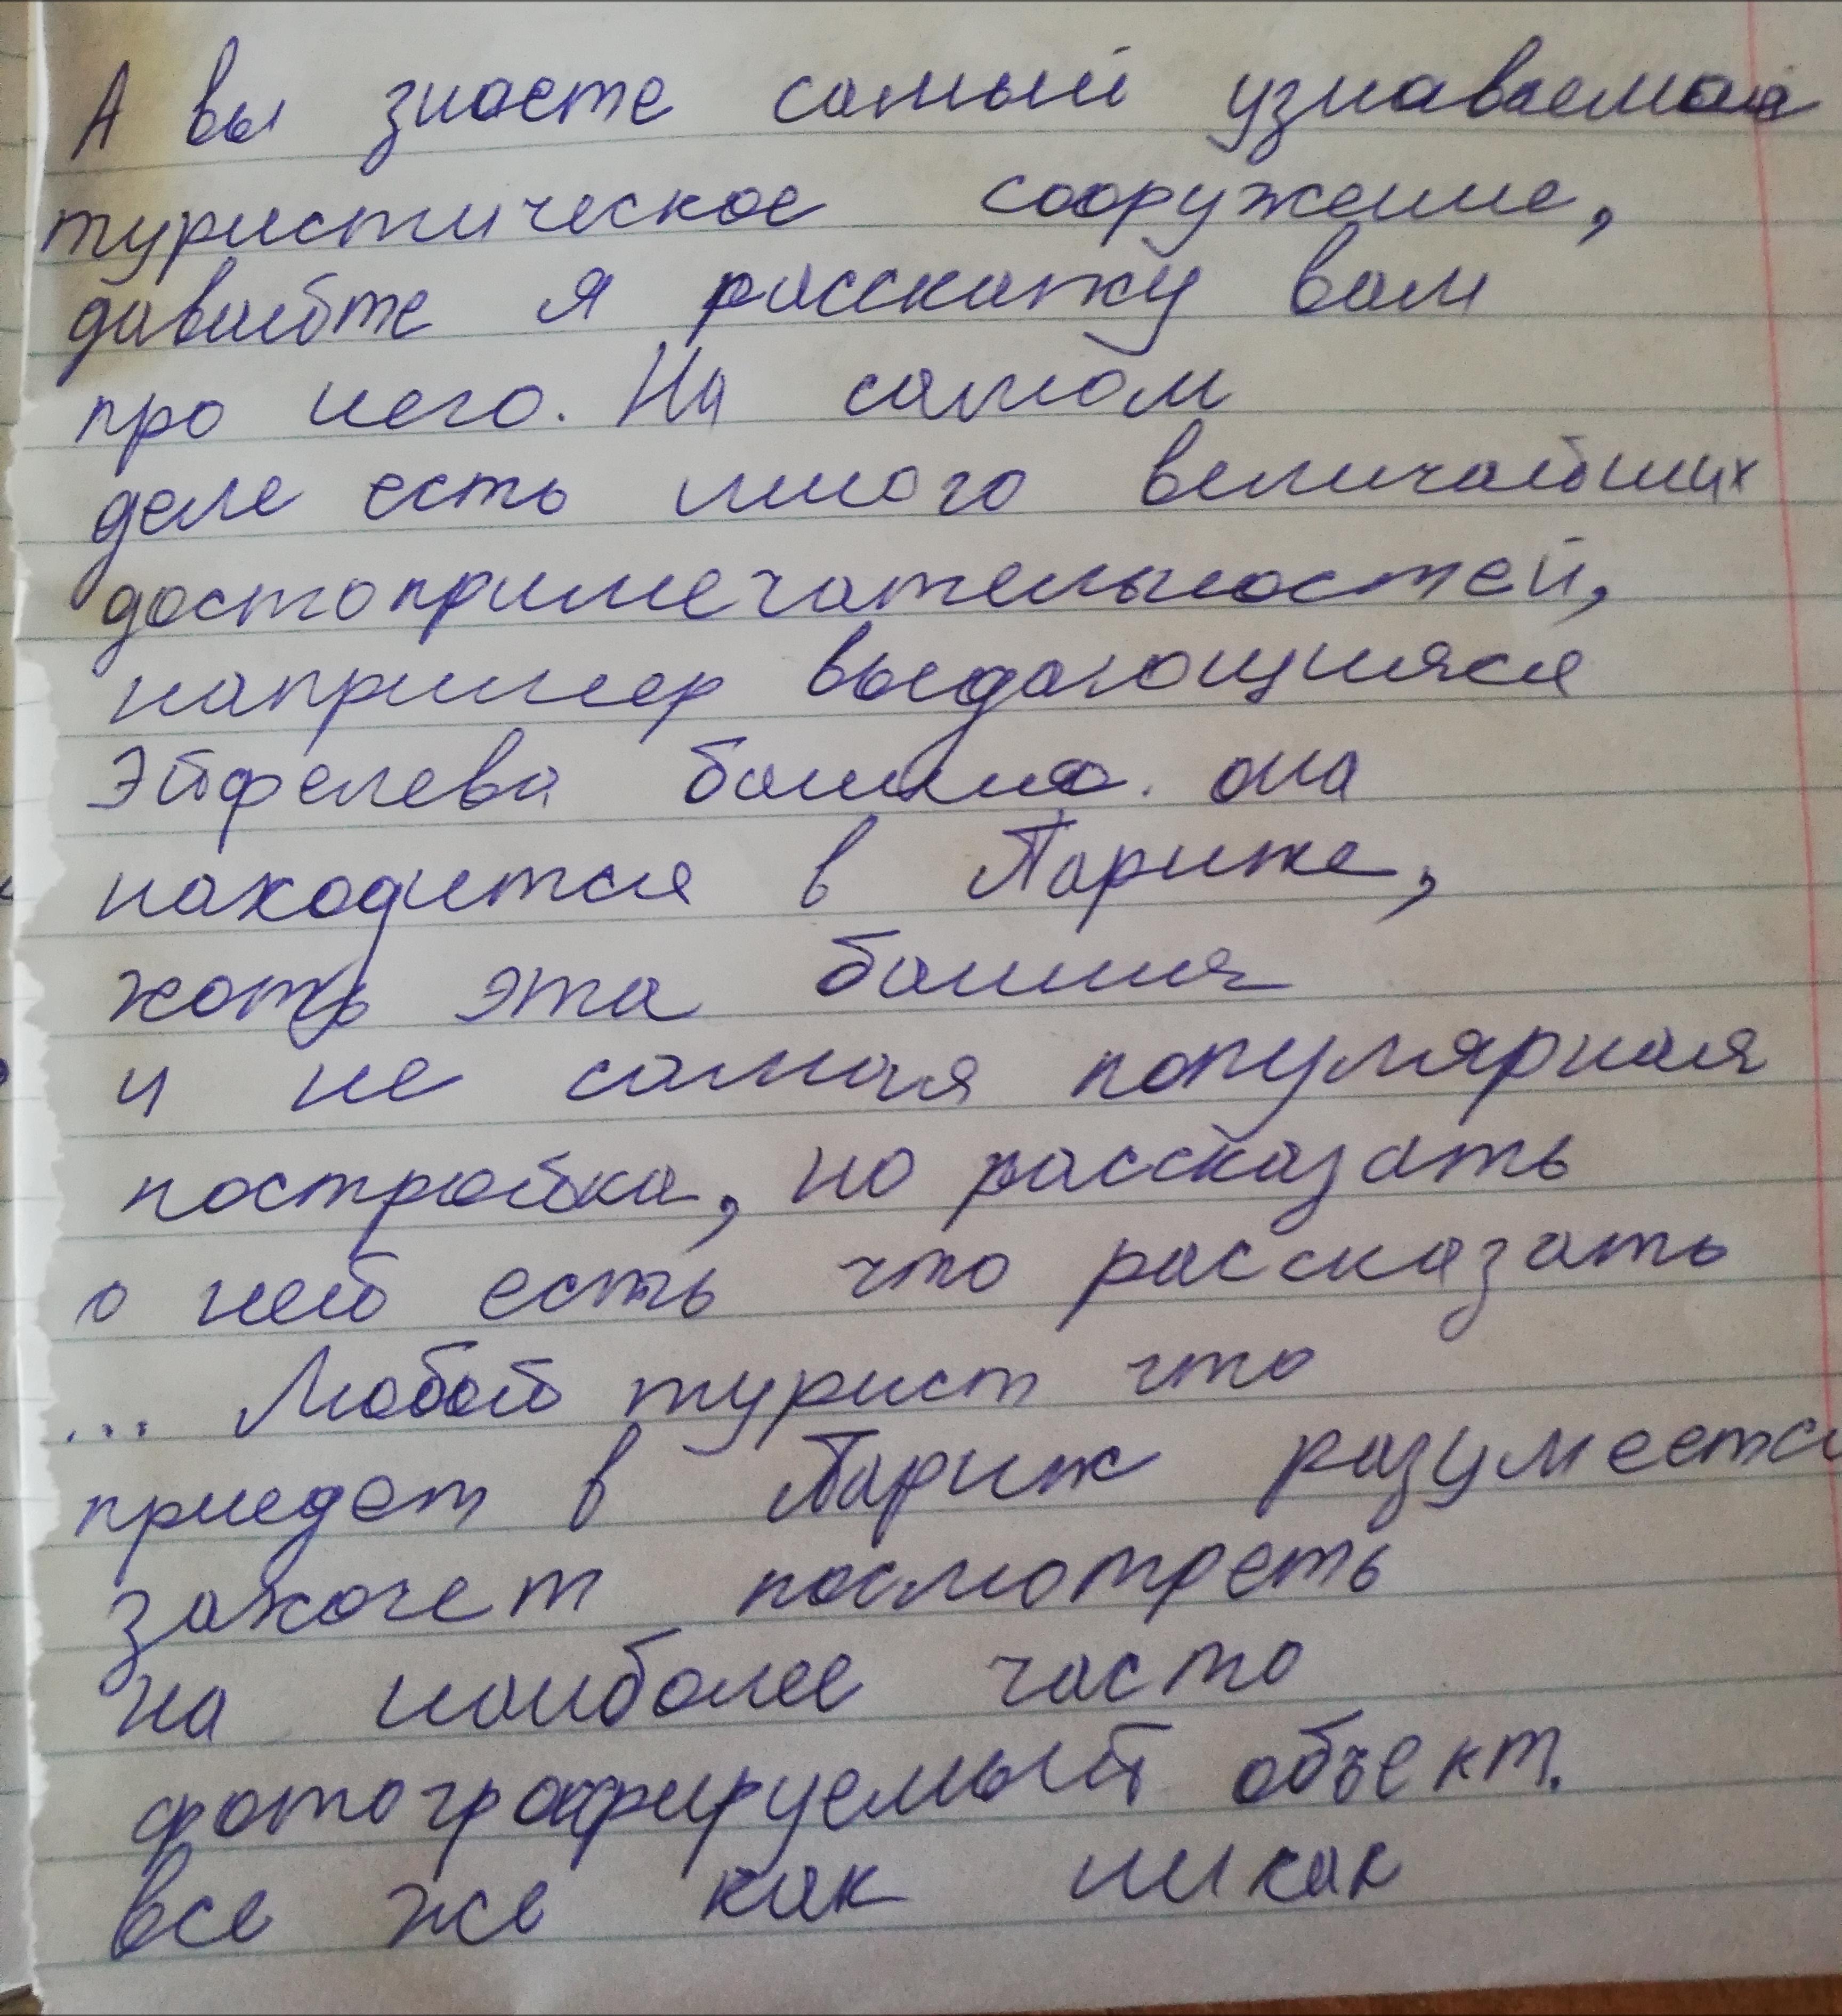 А вы знаете самый узнаваемая
туристическое сооружение,
давайте я расскажу вам
про него. На самом
деле есть много величайших
достопримечательностей,
например выдающияся
Эйфелева башня. она
находится в Париже,
хоть эта башня
и не самая популярная
постройка, но рассказать
о ней есть что рассказать
... Любой турист что
приедет в Париж разумеется
захочет посмотреть
на наиболее часто
фотографируемый объект.
все же как никак